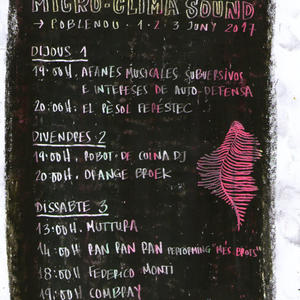 MICRO-CLIMA SOUND
→ POBLENOU · 1 · 2 · 3 JUNY 2017
DIJOUS 1
19:00H. AFANES MUSICALES SUBVERSIVOS
E INTERESES DE AUTO-DEFENSA
20:00H: EL PÈSOL FERÉSTEC
DIVENDRES · 2
19:00H. ROBOT · DE CUINA DJ
20:00H. ORANGE BROEK
DISSABTE 3
13:00H. MUTTURA
14:00H RAN RAN RAN PERFORMING "MES BROTS"
18:00H FEDERICO MONTI
19:00H COMBRAY